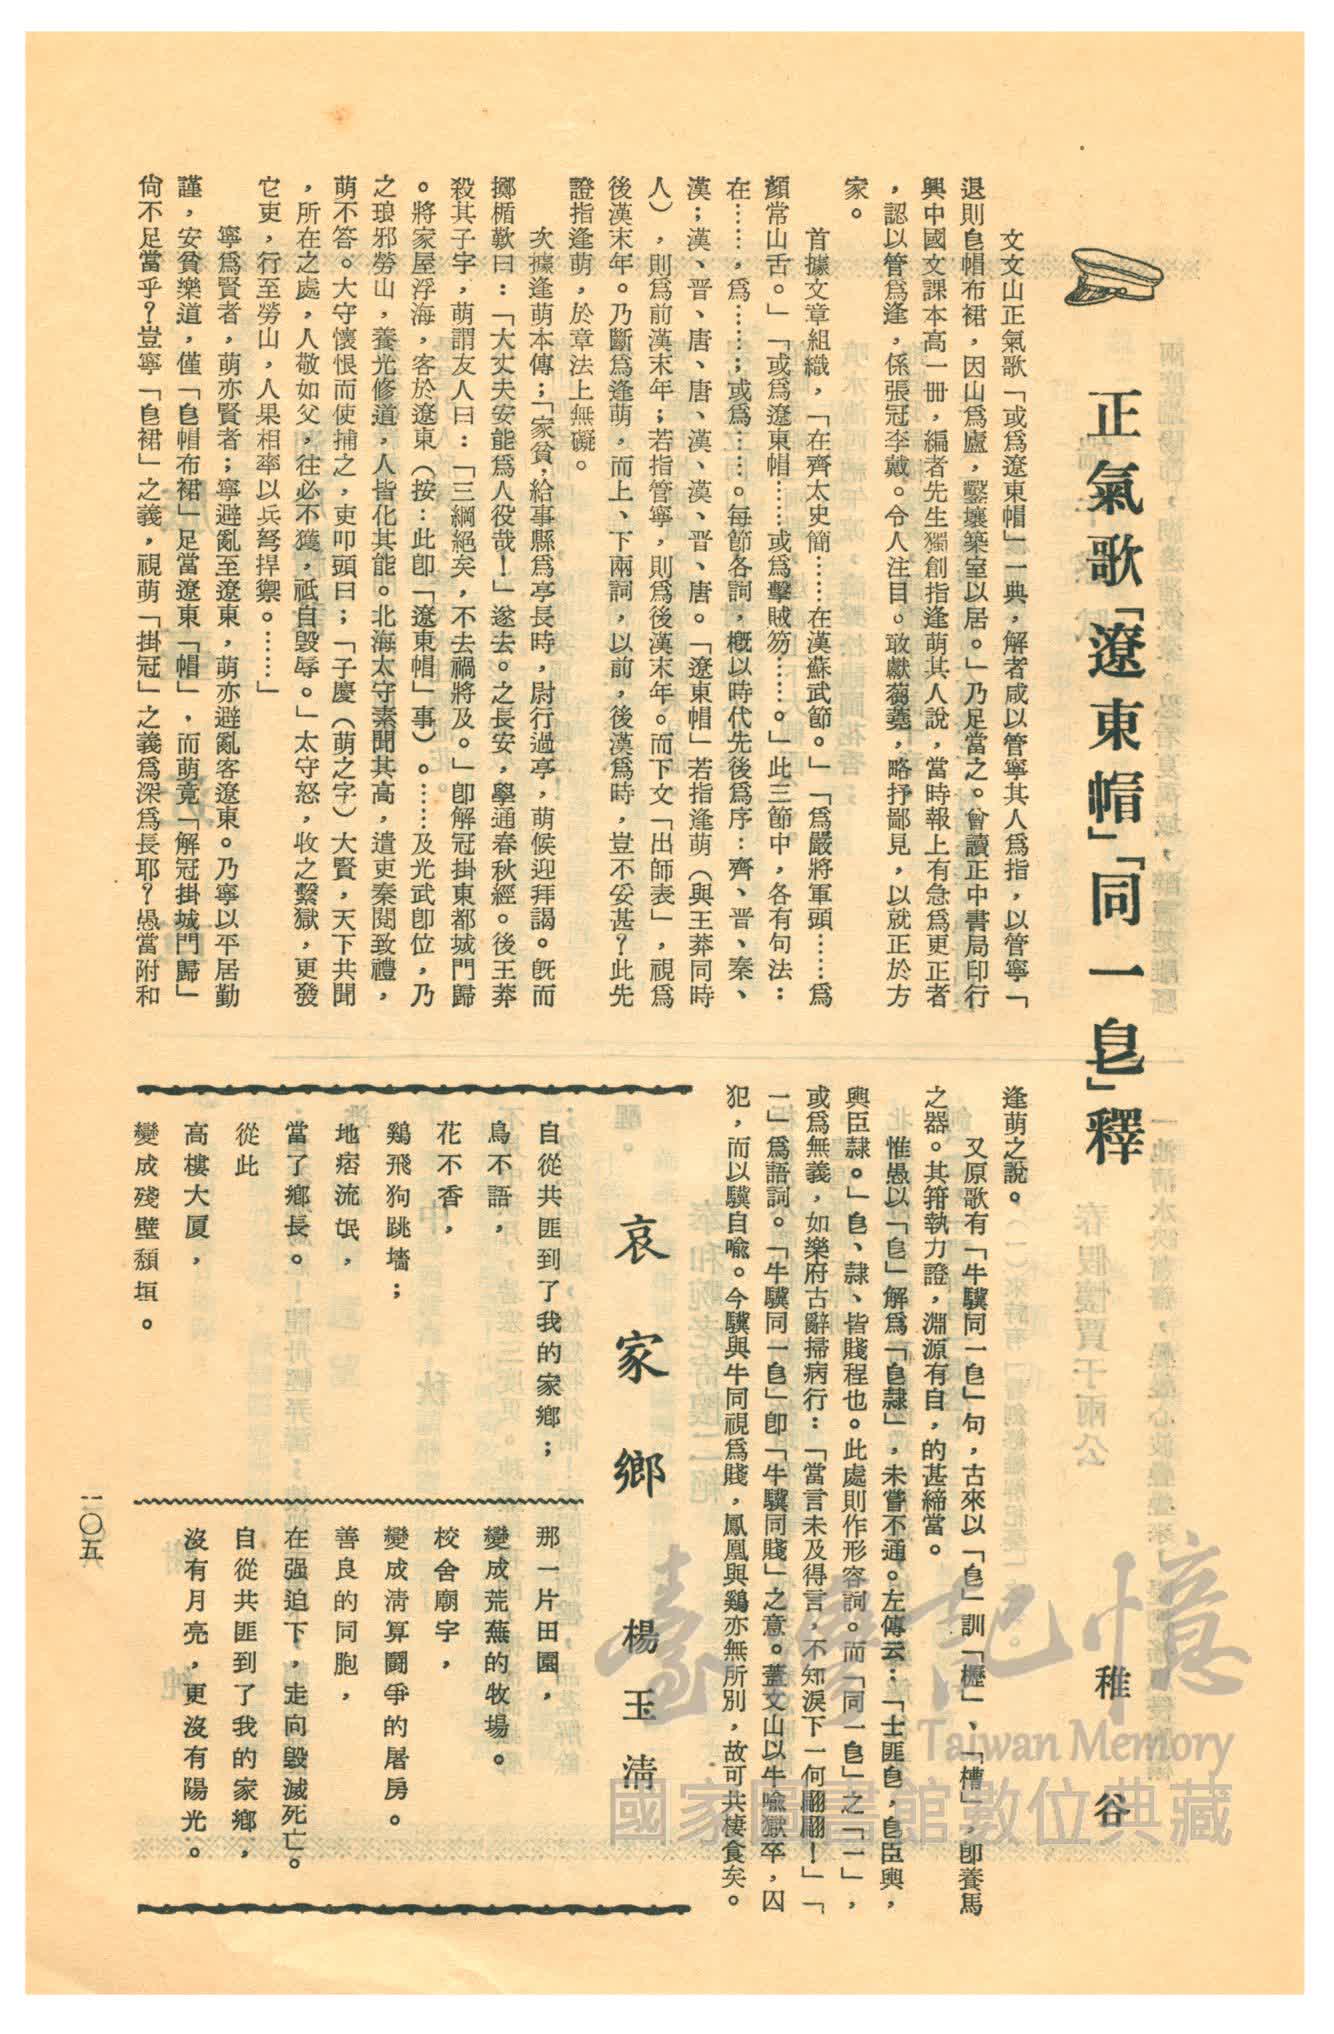 正氣歌「遼東帽」「同一皂」釋
稚谷
文文山正氣歌「或為遼東帽」一典，解者咸以管寧其人為指，以管寧「
退則皂帽布裙，因山為廬，鑿壤築室以居。」乃足當之。曾讀正中書局印行
興中國文課本高一冊，編者先生獨創指逢萌其人說，當時報上有急為更正者
，認以管為逢，係張冠李戴。令人注目。敢獻蒭蕘，略抒鄙見，以就正於方
家。
首據文章組織，「在齊太史簡……在漢蘇武節。」「為嚴將軍頭………為
顏常山舌。」「或為遼東帽……或為擊賊笏……。」此三節中，各有句法：
在……，為……；或為……。每節各詞，概以時代先後為序：齊、晋、秦、
漢；漢、晋、唐、唐、漢、漢、晋、唐。「遼東帽」若指逢萌（與王莽同時
人），則為前漢末年；若指管寧，則為後漢末年。而下文「出師表」，視為
後漢末年。乃斷為逢萌，而上、下兩詞，以前，後漢為時，豈不妥甚？此先
證指逢萌，於章法上無礙。
次據逢萌本傳；「家貧，給事縣為亭長時，尉行過亭，萌候迎拜謁。旣而
擲楯歎曰：「大丈夫安能為人役哉！」遂去。之長安，學通春秋經。後王莽
殺其子宇，萌謂友人曰：「三綱絕矣，不去禍將及。」卽解冠掛東都城門歸
。將家屋浮海，客於遼東（按：此卽「遼東帽」事）。……及光武卽位，乃
之琅邪勞山，養光修道，人皆化其能。北海太守素聞其高，遣吏秦閱致禮，
萌不答。大守懷恨而使捕之，吏叩頭曰；「子慶（萌之字）大賢，天下共聞
，所在之處，人敬如父，往必不獲，祗自毀辱。」太守怒，收之繫獄，更發
它吏，行至勞山，人果相率以兵弩捍禦。……」
寧為賢者，萌亦賢者；寧避亂至遼東，萌亦避亂客遼東。乃寧以平居勤
謹，安貧樂道，僅「皂帽布裙」足當遼東「帽」，而萌竟「解冠掛城門歸」
尙不足當乎？豈寧「皂裙」之義，視萌「掛冠」之義為深為長耶？愚當附和
逢萌之說。
又原歌有「牛驥同一皂」句，古來以「皂」訓「櫪」、「槽」，卽養馬
之器。其箝執力證，淵源有自，的甚締當。
惟愚以「皂」解為「皂隸」，未嘗不通。左傳云：「士匪皂，皂臣輿，
輿臣隸。」皂、隸、皆賤程也。此處則作形容詞。而「同一皂」之「一」，
或為無義，如樂府古辭掃病行：「當言未及得言，不知淚下一何翩翩！」「
一」為語詞。「牛驥同一皂」卽「牛驥同賤」之意。蓋文山以牛喩獄卒，囚
犯，而以驥自喩。今驥與牛同視為賤，鳳凰與鷄亦無所別，故可共棲食矣。
哀家鄉
楊玉淸
自從共匪到了我的家鄉；
鳥不語，
花不香，
鷄飛狗跳墻；
地痞流氓，
當了鄉長。
從此
高樓大厦，
變成殘壁頹垣。
那一片田園，
變成荒蕪的牧場。
校舍廟宇，
變成淸算鬪爭的屠房。
善良的同胞，
在强迫下，走向毀滅死亡。
自從共匪到了我的家鄉，
沒有月亮，更沒有陽光。
二〇五
臺灣記憶
Taiwan Memory
國家圖書館數位典藏